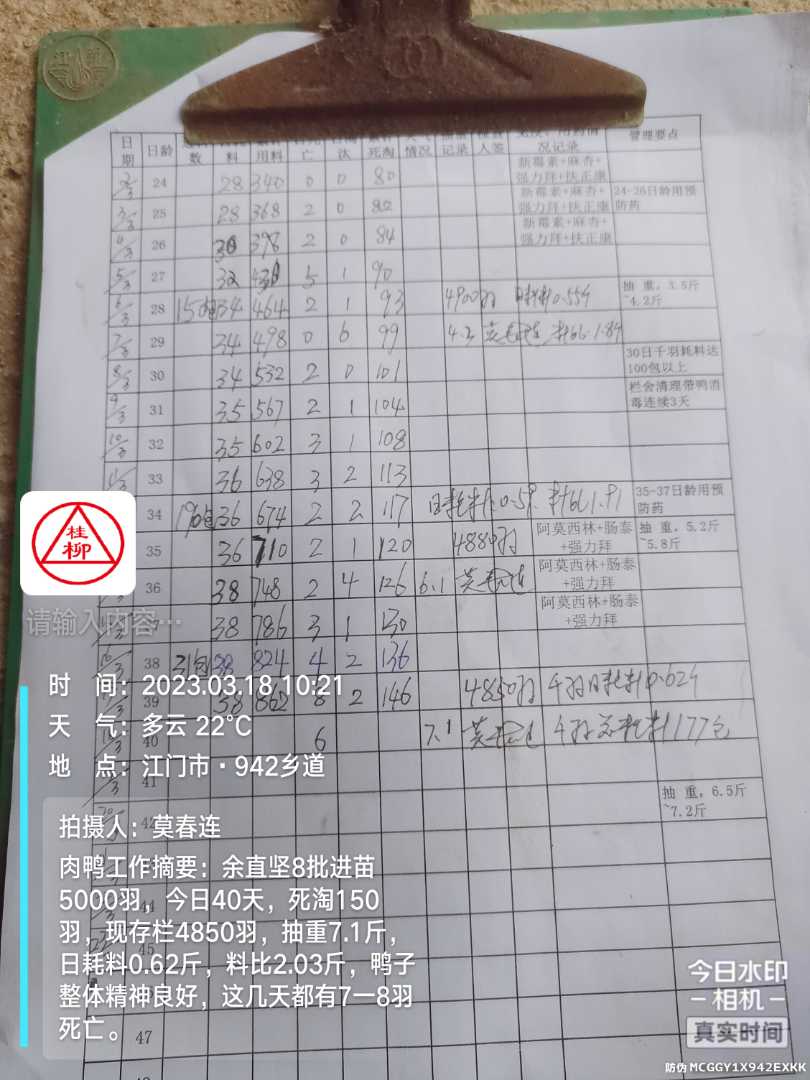 日期 日龄 数 料 用料 亡 汰 死淘 情况 记录 人签 况记录 管理要点
2/3 24 28 340 0 0 80 新霉素+麻杏+强力拜+扶正康
3/3 25 28 368 2 0 82 新霉素+麻杏+强力拜+扶正康 24-26日龄用预防药
4/3 26 30 398 2 0 84 新霉素+麻杏+强力拜+扶正康
5/3 27 32 430 5 1 90
6/3 28 150包 34 464 2 1 93 4900羽 日耗料0.55斤 抽重,3.5斤~4.2斤
7/3 29 34 498 0 6 99 4.2 莫春连 料比1.89
8/3 30 34 532 2 0 101 30日千羽耗料达100包以上
9/3 31 35 567 2 1 104 栏舍清理带鸭消毒连续3天
10/3 32 35 602 3 1 108
11/3 33 36 638 3 2 113
34 36 674 2 2 117 日耗料0.59 料比1.91 35-37日龄用预防药
35 36 710 2 1 120 4880羽 阿莫西林+肠泰+强力拜 抽重,5.2斤~5.8斤
36 38 748 2 4 126 6.1 莫春连 阿莫西林+肠泰+强力拜
38 786 3 1 130 阿莫西林+肠泰+强力拜
38 31包 38 824 4 2 136
39 38 862 8 2 146 4850羽 千羽日耗料0.62斤
40 6 7.1 莫春连 千羽总耗料177包
41
42 抽重,6.5斤~7.2斤
44
45
47
桂柳
请输入内容…
时 间:2023.03.18 10:21
天 气:多云 22°C
地 点:江门市·942乡道
拍摄人:莫春连
肉鸭工作摘要:余直坚8批进苗
5000羽,今日40天,死淘150
羽,现存栏4850羽,抽重7.1斤,
日耗料0.62斤,料比2.03斤,鸭子
整体精神良好,这几天都有7一8羽
死亡。
今日水印
相机
真实时间
防伪 MCGGY1X942EXKK